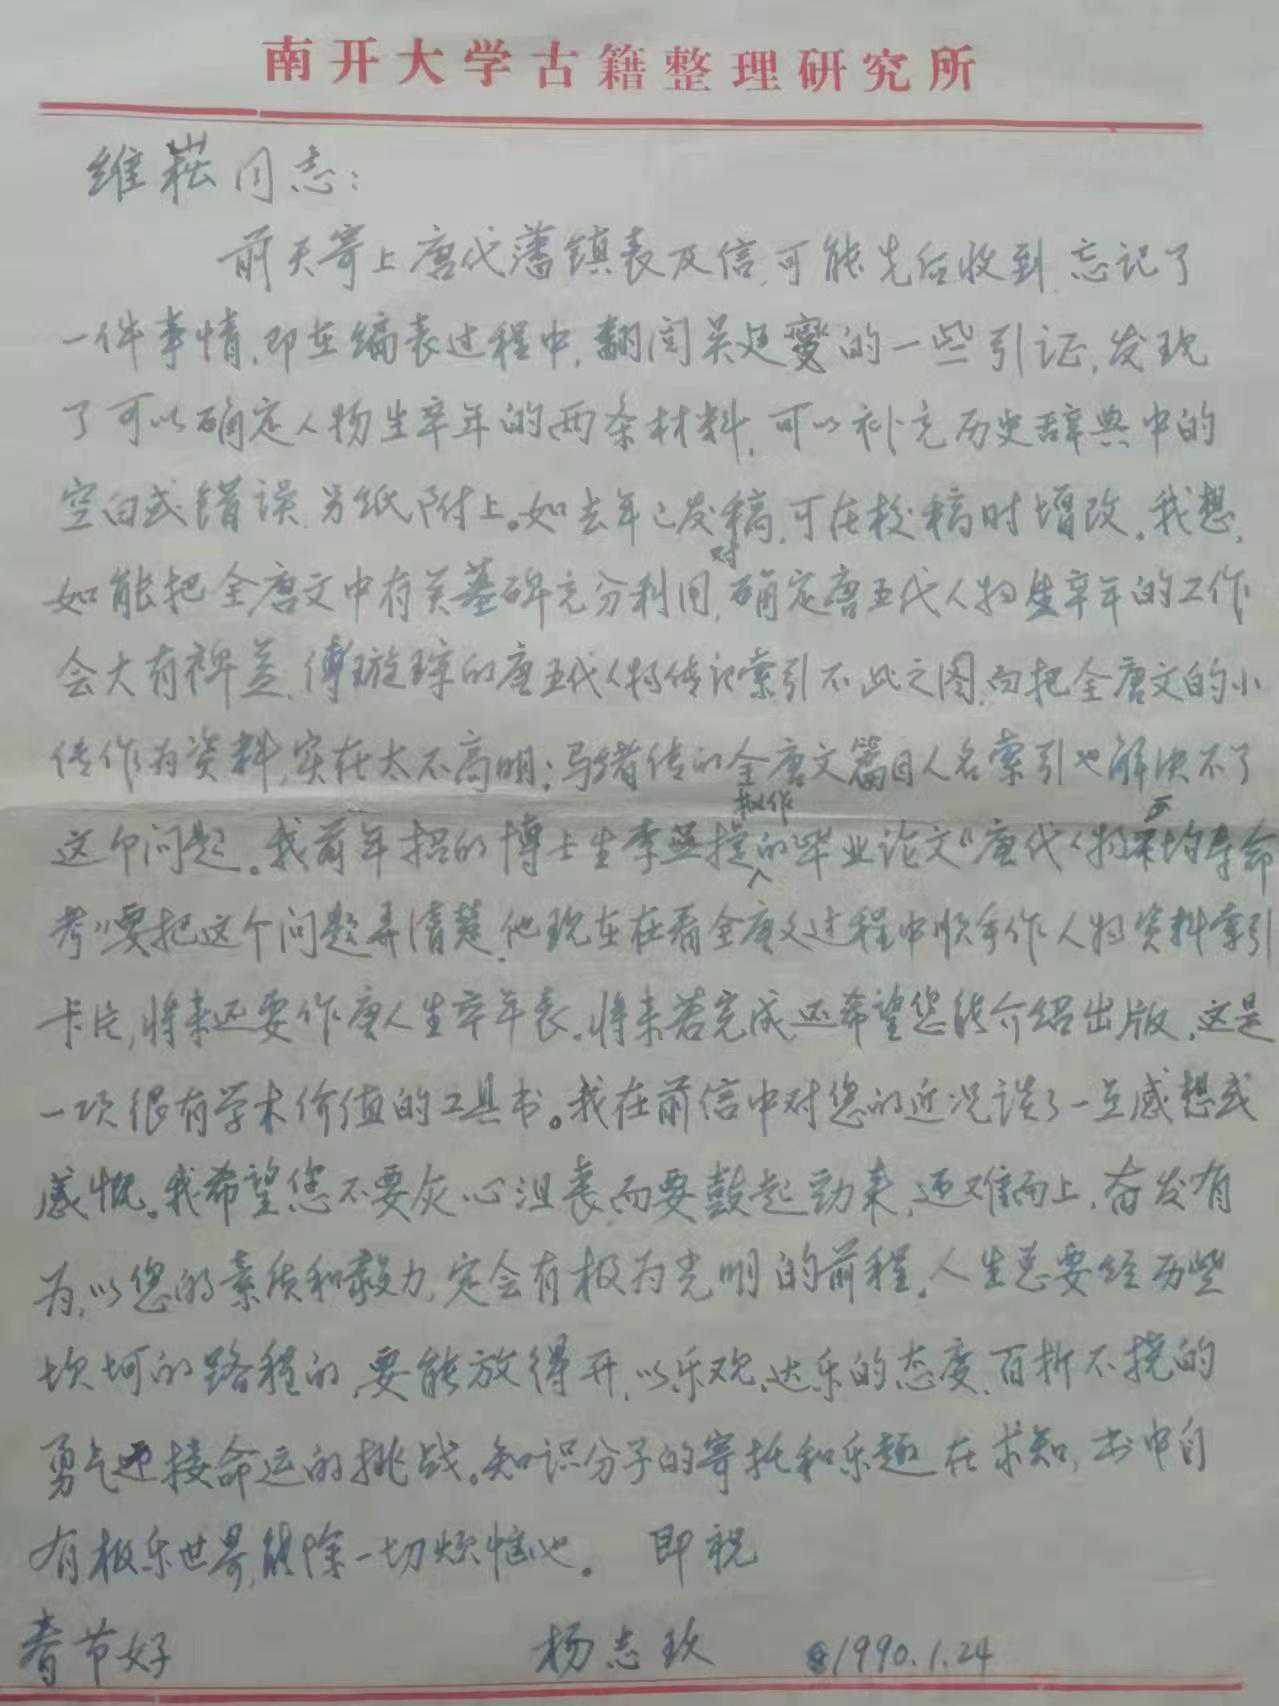 南开大学古籍整理研究所
维菘同志：
前天寄上唐代藩镇表及信,可能先后收到.忘记了
一件事情,即在编表过程中,翻阅吴廷燮的一些引证,发现
了可以确定人物生卒年的两条材料,可以补充历史辞典中的
空白或错误.另纸附上。如去年已发稿,可在校稿时增改。我想,
如能把全唐文中有关墓碑充分利用,对确定唐五代人物生卒年的工作
会大有裨益,傅璇琮的唐五代人物传记索引不此之图,而把全唐文的小
传作为资料,实在太不高明;马绪传的全唐文篇目人名索引也解决不了
这个问题。我前年招的博士生李燕捷拟作的毕业论文“唐代人物平均寿命
考”要把这个问题弄清楚.他现在在看全唐文过程中顺手作人物资料索引
卡片,将来还要作唐人生卒年表。将来若完成,还希望您能介绍出版.这是
一项很有学术价值的工具书。我在前信中对您的近况谈了一点感想或
感慨。我希望您不要灰心沮丧,而要鼓起劲来,迎难而上,奋发有
为,以您的素质和毅力,定会有极为光明的前程.人生总要经历些
坎坷的路程的,要能放得开,以乐观、达乐的态度,百折不挠的
勇气迎接命运的挑战。知识分子的寄托和乐趣在求知,书中自
有极乐世界,能除一切烦恼也。 即祝
春节好 杨志玖 1990.1.24